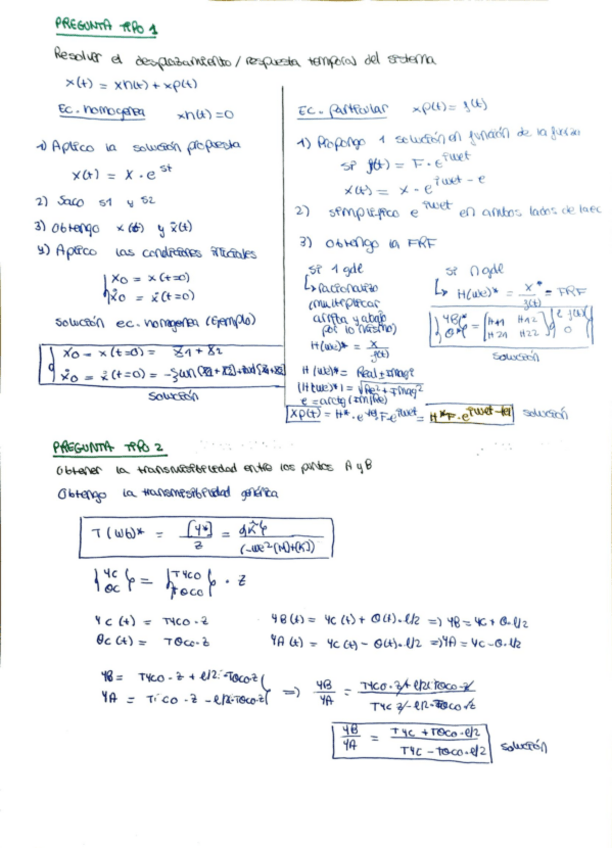 PREGUNTA TIPO 1
Resolver el desplazamiento / respuesta temporal del sistema
x(t) = xh(t) + xp(t)
Ec. homogenea xh(t) = 0
1) Aplico la solución propuesta
x(t) = X · e^st
2) Saco s1 y s2
3) Obtengo x(t) y ẋ(t)
4) Aplico las condiciones iniciales
x0 = x(t=0)
ẋ0 = ẋ(t=0)
solución ec. homogenea (Ejemplo)
x0 = x(t=0) = z1 + z2
ẋ0 = ẋ(t=0) =
solución
Ec. Particular xp(t) = f(t)
1) Propongo 1 solución en función de la fuerza
si f(t) = F · e^iwet
x(t) = x · e^iwet - e
2) simplifico e^iwet en ambos lados de la ec
3) Obtengo la FRF
si 1 gdl
↳ racionalizo
(multiplicar
arriba y abajo
por lo mismo)
H(we)* = x / f(t)
H(we)* = Real ± imag i
|H(we)*| = √Re² + Imag²
e = arctg (Im/Re)
si n gdl
↳ H(we)* = x* / f(t) = FRF
{yB* θ*} = [H11 H12 H21 H22]
solución
xp(t) = H* · e^-iφ F · e^iwet = H* F · e^iwet - iφ solución
PREGUNTA TIPO 2
Obtener la transmisibilidad entre los puntos A y B
Obtengo la transmisibilidad genérica
T(we)* = {y*} / z = / (-we²[M]+[K])
{yc θc} = {Tyco Tθco} · z
yc(t) = Tyco · z
θc(t) = Tθco · z
yB(t) = yc(t) + θ(t) · l/2 => yB = yc + θ · l/2
yA(t) = yc(t) - θ(t) · l/2 => yA = yc - θ · l/2
yB = Tyco · z + l/2 · Tθco · z
yA = Tyco · z - l/2 · Tθco · z
=> yB / yA = Tyco · z + l/2 · Tθco · z / Tyc z - l/2 · Tθco · z
yB / yA = Tyc + Tθco · l/2 / Tyc - Tθco · l/2 solución